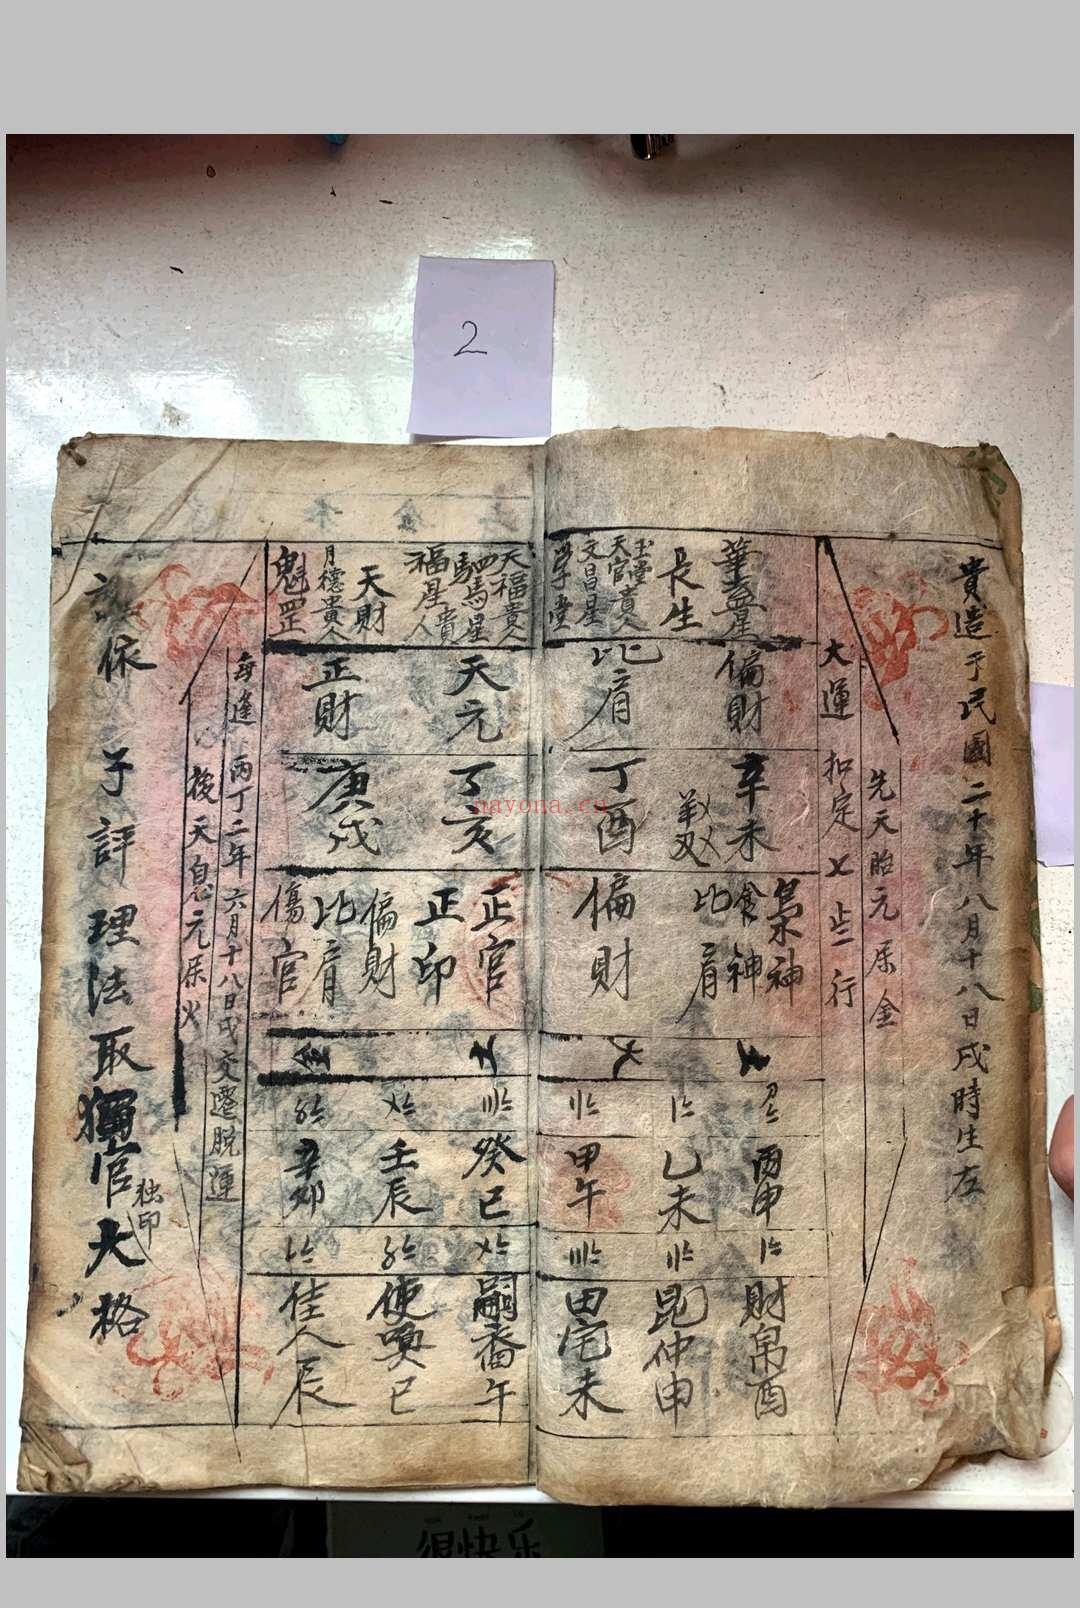 2
貴造于民國二十年八月十八日戌時生左
先天胎元屬金
大運扣定七岁行
華蓋星
長生
玉堂
天官貴人
文昌星
学堂
天福貴人
驷馬星
福星貴人
天財
月德貴人
魁罡
偏財
比肩
天元
正財
辛未
丁酉
丁亥
庚戌
梟神
食神
比肩
偏財
正官
正印
偏財
比肩
傷官
丙申
乙未
甲午
癸巳
壬辰
辛卯
財帛酉
昆仲申
田宅未
嗣裔午
使喚巳
佳人辰
每逢丙丁二年六月十八日戌交遷脫運
後天息元屬火
依子評理法取獨官大格
独印
nayona.cn
很快乐